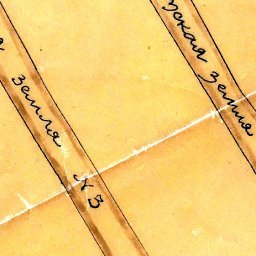 земля
N 3
ская земля